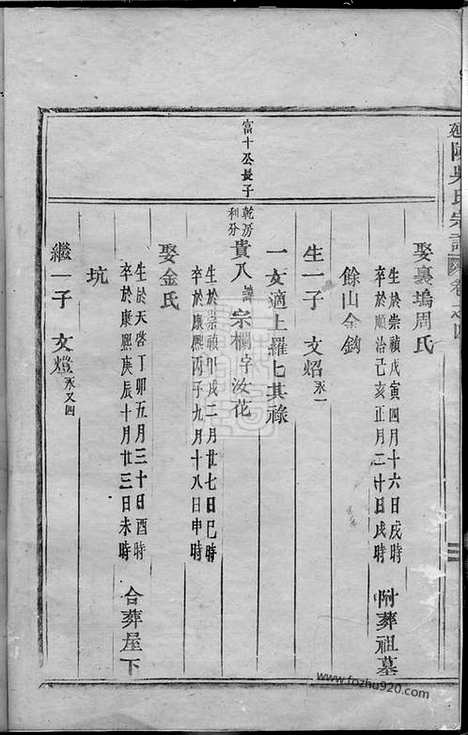 吳氏宗譜 卷之四
娶裏塢周氏
生於崇禎戊寅四月十六日戌時
卒於順治己亥正月二十日戌時
附葬祖墓
餘山金鈎
生一子 文炤 永一
一女適上羅七其祿
富十公長子
乾房
利分
貴八 諱宗欄字汝花
生於崇禎 二月廿七日巳時
卒於康熙丙子九月十八日申時
娶金氏
生於天啓丁卯五月三十日酉時
卒於康熙庚辰十月廿三日未時
合葬屋下
坑
繼一子 文燈 永又四
www.fozhu920.com